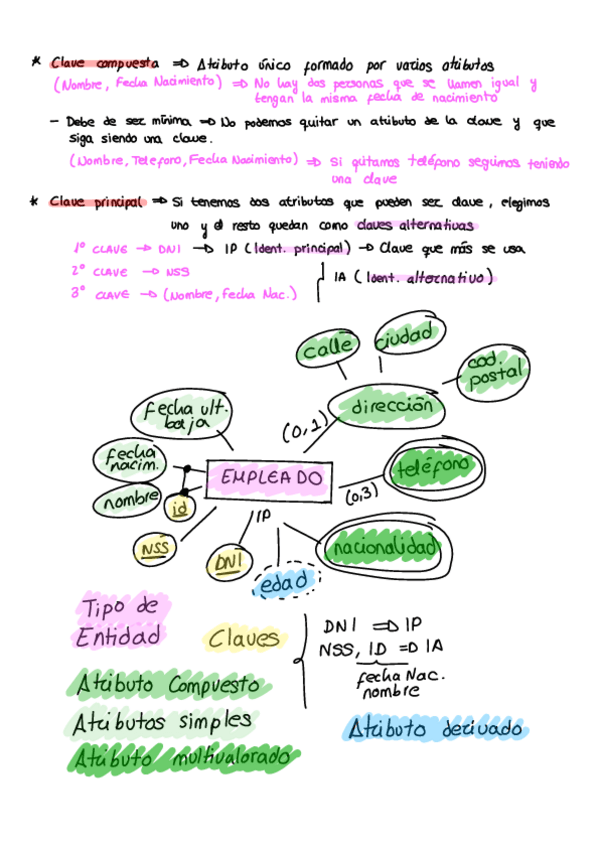 * Clave compuesta ⇒ Atributo único formado por varios atributos
(Nombre, Fecha Nacimiento) ⇒ No hay dos personas que se llamen igual y
tengan la misma fecha de nacimiento
- Debe de ser mínima ⇒ No podemos quitar un atributo de la clave y que
siga siendo una clave.
(Nombre, Teléfono, Fecha Nacimiento) ⇒ Si quitamos teléfono seguimos teniendo
una clave
* Clave principal ⇒ Si tenemos dos atributos que pueden ser clave, elegimos
uno y el resto quedan como claves alternativas
1º CLAVE → DNI → IP (Ident. principal) → Clave que más se usa
2º CLAVE → NSS
IA (Ident. alternativo)
3º CLAVE → (Nombre, Fecha Nac.)
calle
ciudad
cod.
postal
dirección
Fecha ult.
baja
(0,1)
fecha
nacim.
EMPLEADO
teléfono
nombre
id
(0,3)
IP
NSS
DNI
nacionalidad
edad
Tipo de
Entidad
Claves
DNI ⇒ IP
NSS, ID ⇒ IA
fecha Nac.
nombre
Atributo Compuesto
Atributos simples
Atributo derivado
Atributo multivalorado